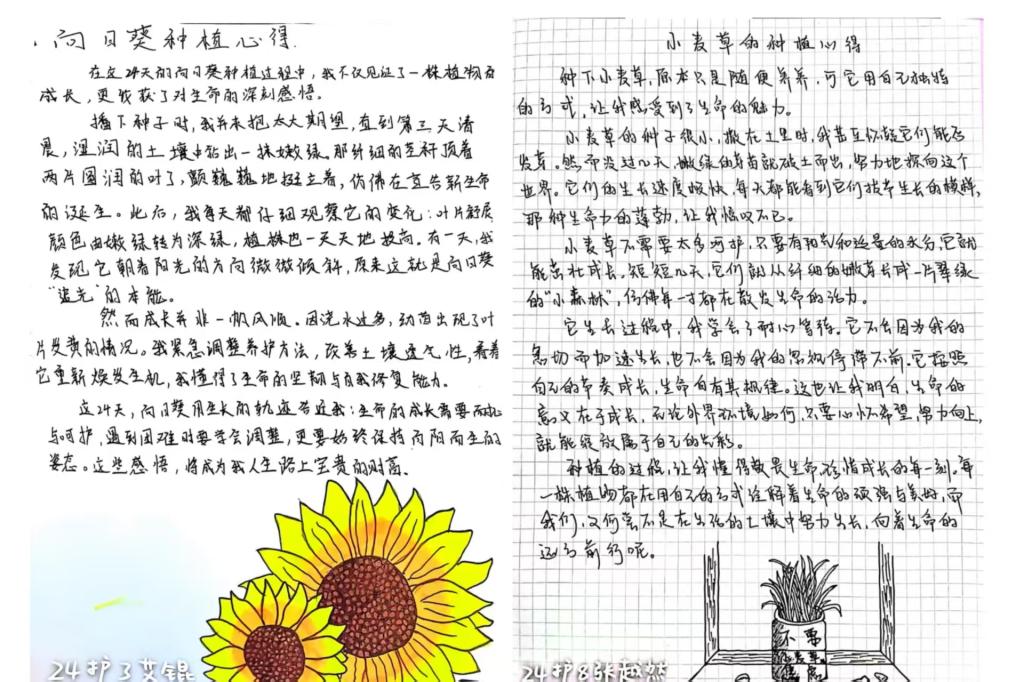 向日葵种植心得.
在这24天的向日葵种植过程中，我不仅见证了一株植物的
成长，更收获了对生命的深刻感悟。
播下种子时，我并未抱太大期望，直到第三天清
晨，湿润的土壤中钻出一抹嫩绿。那纤细的茎秆顶着
两片圆润的叶子，颤巍巍地挺立着，仿佛在宣告新生命
的诞生。此后，我每天都仔细观察它的变化：叶片舒展
颜色由嫩绿转为深绿，植株也一天天地拔高。有一天，我
发现它朝着阳光的方向微微倾斜，原来这就是向日葵
“追光”的本能。
然而成长并非一帆风顺。因浇水过多，幼苗出现了叶
片发黄的情况。我紧急调整养护方法，改善土壤透气性，看着
它重新焕发生机，我懂得了生命的坚韧与自我修复能力。
这24天，向日葵用生长的轨迹告诉我：生命的成长需要耐心
与呵护，遇到困难时要学会调整，更要始终保持向阳而生的
姿态。这些感悟，将成为我人生路上宝贵的财富。
24护3艾锟
小麦草的种植心得
种下小麦草，原本只是随便养养，可它用自己独特
的方式，让我感受到了生命的魅力。
小麦草的种子很小，撒在土里时，我甚至怀疑它们能否
发芽。然而没过几天，嫩绿的幼苗就破土而出，努力地探向这个
世界。它们的生长速度极快，每天都能看到它们拔节生长的模样，
那种生命力的蓬勃，让我惊叹不已。
小麦草不需要太多呵护，只要有阳光和适量的水分，它就
能茁壮成长。短短几天，它们就从纤细的嫩芽长成一片翠绿
的“小森林”，仿佛每一寸都在散发生命的活力。
它生长过程中，我学会了耐心等待。它不会因为我的
急切而加速生长，也不会因为我的忽视停滞不前。它按照
自己的节奏成长，生命自有其规律。这也让我明白，生命的
意义在于成长，无论外界环境如何，只要心怀希望，努力向上，
就能绽放属于自己的光彩。
种植的过程，让我懂得敬畏生命，珍惜成长的每一刻。每
一株植物都在用自己的方式诠释着生命的顽强与美好，而
我们，又何尝不是在生活的土壤中努力生长，向着生命的
远方前行呢。
不要
小麦草
24护8张越然